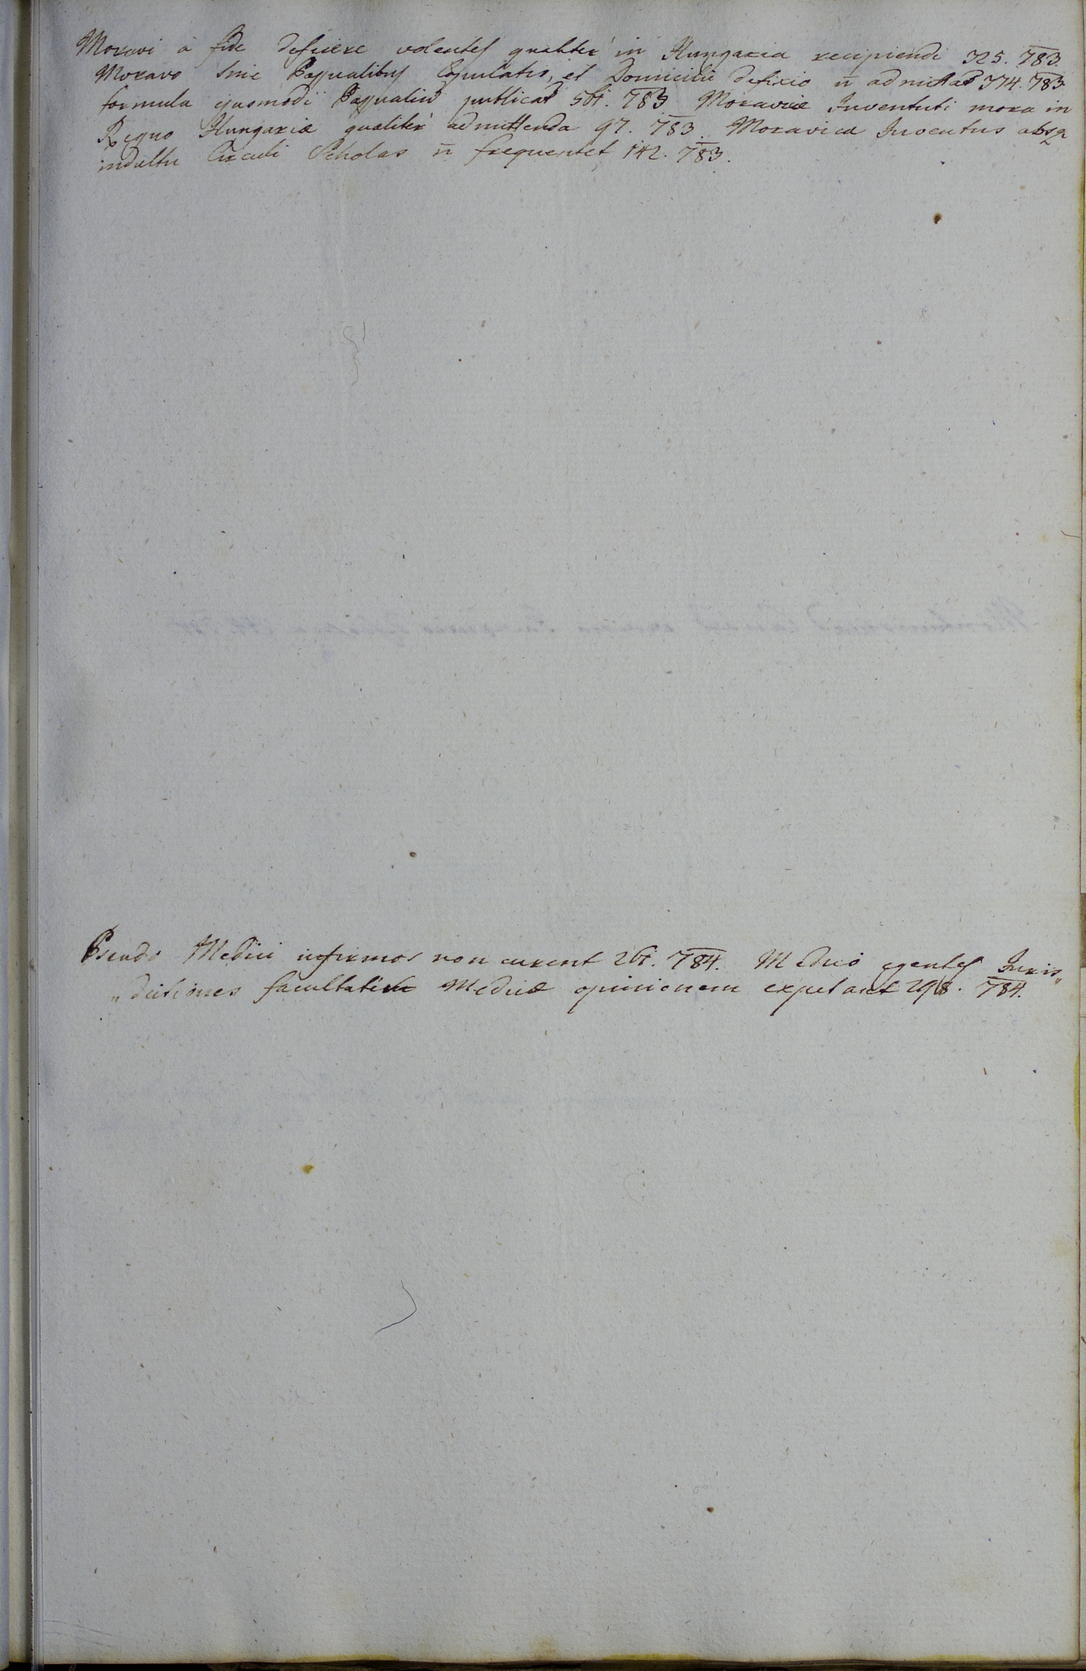 Moravi à fide deficere volentes qualiter in Hungaria recipiendi 325. 783.
Moravo sine Passualibus Copulatio, et Domicilii defixio n̄ admittat 374. 783
formula ejusmodi Passualiū publicat 561. 783 Moraviæ Inventuti mora in
Regno Hungariæ qualiter admittenda 97. 783. Moravica Juventus absq
indultu Circuli Scholas n̄ frequentet 142. 783.
Pseudo Medici infirmos non curent 261. 784. Medico egentes Juris„
„dictiones facultatis Medicæ opinionem expetant 298. 784.